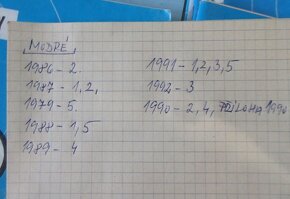 „MODRÉ"
1986 - 2.
1987 - 1,2,
1979 - 5.
1988 - 1,5
1989 - 4
1991 - 1,2,3,5
1992 - 3
1990 - 2,4, PŘÍLOHA 1990